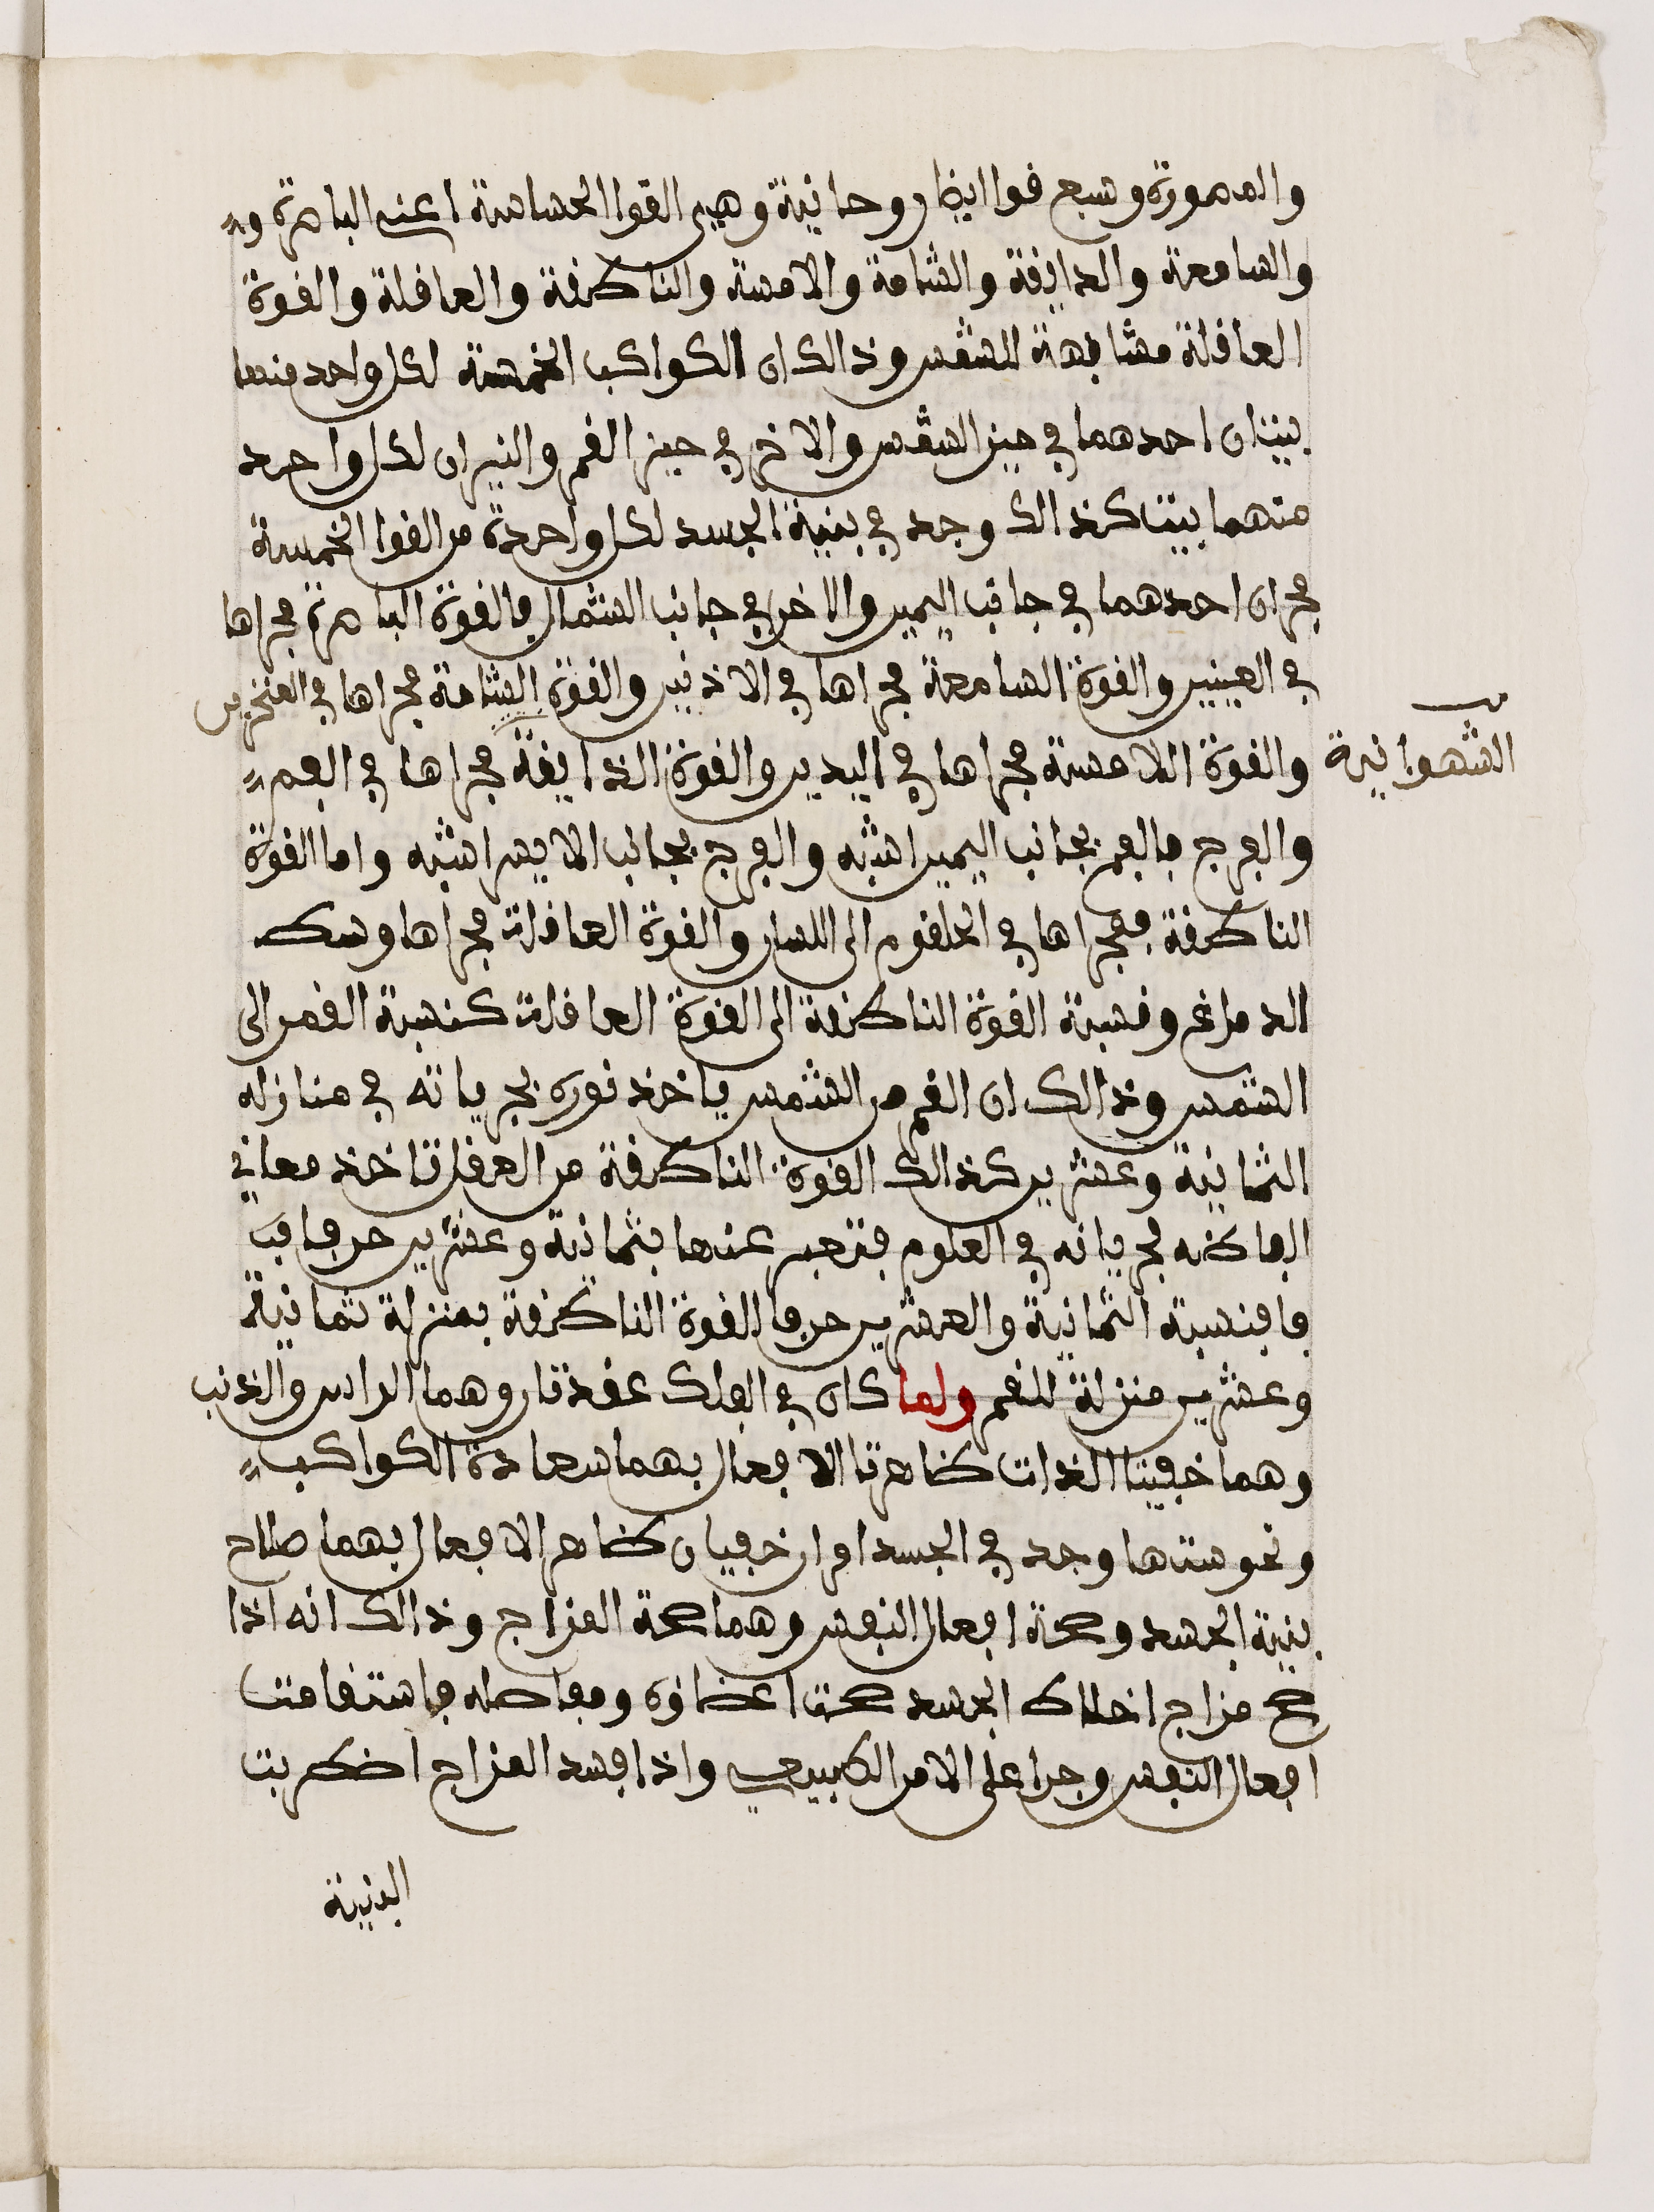 والمصورة وسبع قوا ايضا روحانية وهي القوا الحساسة اعني الباصرة و
والسامعة والدايقة والشامة والامسة والناطقة والعاقلة والقوة
العاقلة مشابهة للشمس وذالك ان الكواكب الخمسة لكل واحد منها
بيتان احدهما في حيز الشمس والاخر في حيز القمر والنيران لكل واحد
منهما بيت كذالك وجد في بنية الجسد لكل واحدة من القوا الخمسة
مجران احدهما في جانب اليمين والاخر في جانب الشمال فالقوة الباصرة مجراها
في العينين والقوة السامعة مجراها في الاذنين والقوة الشامة مجراها في المنخرين
والقوة اللامسة مجراها في اليدين والقوة الذايقة مجراها في الفم
الشهوانية
والفرج فالفم بجانب اليمين اشبه والفرج بجانب الايسر اشبه واما القوة
الناطقة فمجراها في الحلقوم الى اللسان والقوة العاقلة مجراها وسط
الدماغ ونسبة القوة الناطقة الى القوة العاقلة كنسبة القمر الى
الشمس وذالك ان القمر من الشمس ياخذ نوره بجريانه في منازله
الثمانية وعشرين كذالك القوة الناطقة من العقل تاخذ معاني
الفاظه بجريانه في العلوم فتعبر عنها بثمانية وعشرين حرفا
فا فنسبة الثمانية والعشرين حرفا للقوة الناطقة بمنزلة ثمانية
وعشرين منزلة للقمر ولما كان في الفلك عقدتان وهما الراس والذنب
وهما خفيتا الذات ظاهرتا الافعال بهما سعادة الكواكب
ونحوستها وجد في الجسد امران خفيان ظاهر الافعال بهما صلاح
بنية الجسد وصحة افعال النفس وهما صحة المزاج وذالك انه اذا
صح مزاج اخلاط الجسد صحت اعضاوه ومفاصله فاستقامت
افعال النفس وجرا على الامر الطبيعي واذا فسد المزاج اضطربت
البنية